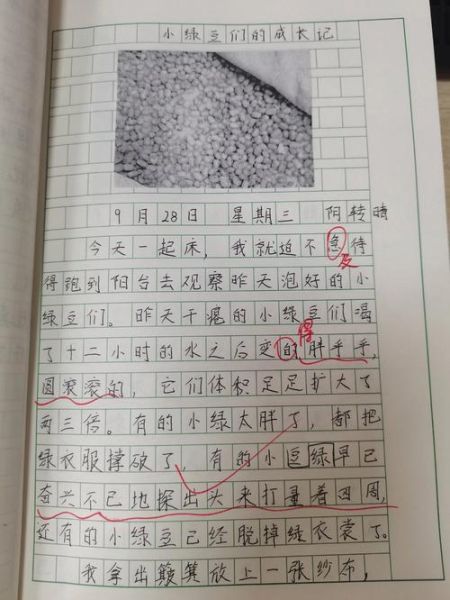 小绿豆们的成长记
9月28日 星期三 阴转晴
今天一起床，我就迫不急待
及
得跑到阳台去观察昨天泡好的小
绿豆们。昨天干瘪的小绿豆们喝
得
了十二小时的水之后变的胖乎乎，
圆滚滚的，它们体积足足扩大了
两三倍。有的小绿太胖了，都把
绿衣服撑破了，有的小豆绿早已
奋兴不已地探出头来打量着四周，
还有的小绿豆已经脱掉绿衣裳了。
我拿出簸箕放上一张纱布，